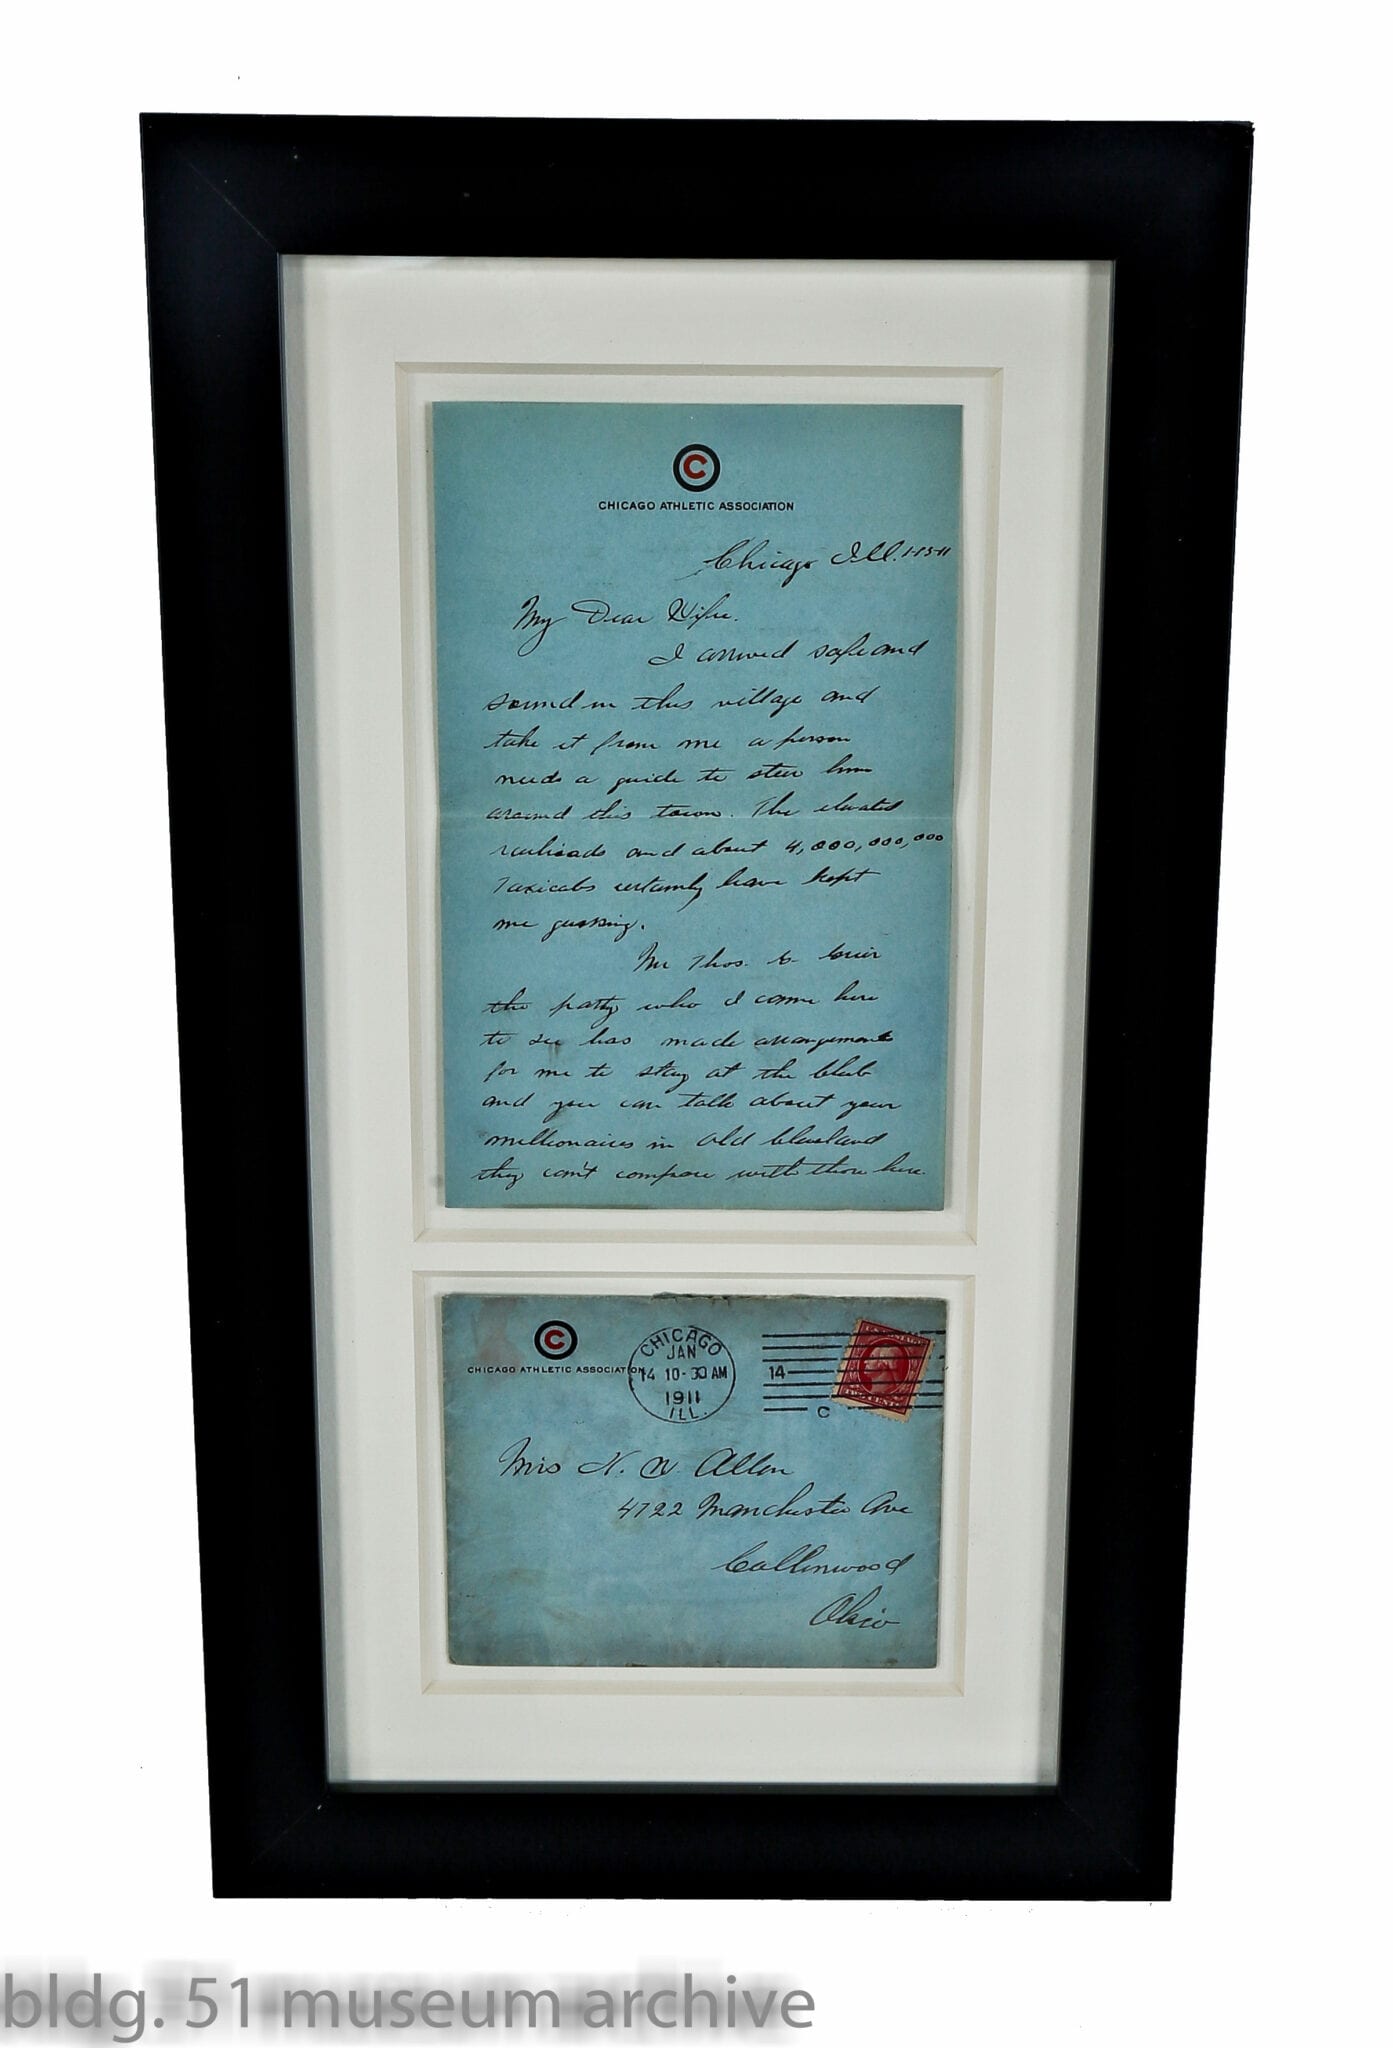 C
CHICAGO ATHLETIC ASSOCIATION
Chicago Ill. 1-13-11
My Dear Wife.
I arrived safe and
sound in this village and
take it from me a person
needs a guide to steer him
around this town. The elevated
railroads and about 4,000,000,000
Taxicabs certainly have kept
me guessing.
Mr Thos.
the party who I came here
to see has made arrangements
for me to stay at the Club
and you can talk about your
millionaires in Old Cleveland
they can't compare with those here.
C
CHICAGO ATHLETIC ASSOCIATION
CHICAGO
JAN
14 10-30 AM
1911
ILL.
14
C
TWO CENTS
Mrs N. W. Allen
4722 Manchester Ave
Collinwood
Ohio
bldg. 51 museum archive